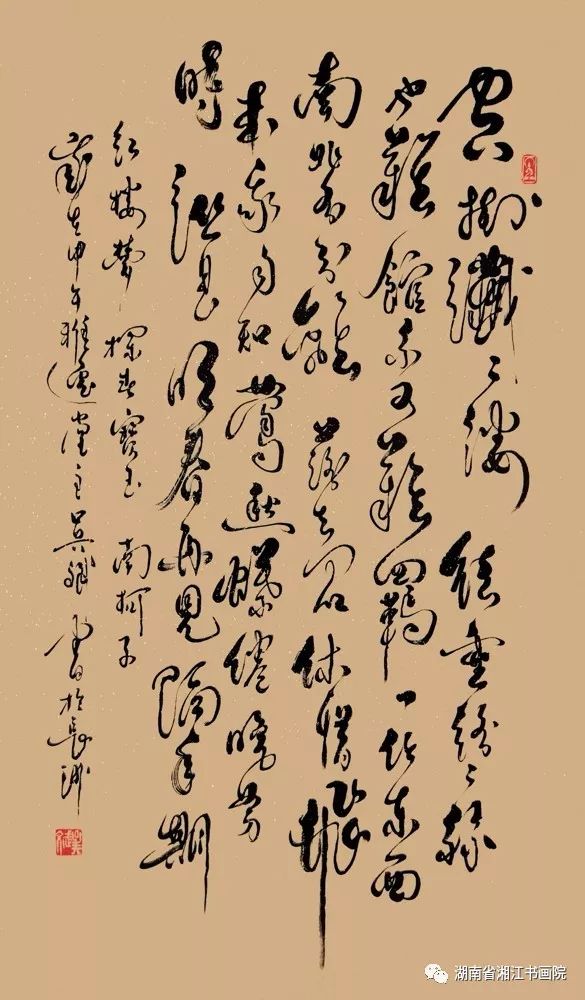 空掛纖々縷徒垂絡々絲
也難綰系也難羈一任東西
南北各分離落去君休惜飛
來我自知鶯愁蝶倦晚芳
時縱是明春再見隔年期
紅樓夢探春寶玉南柯子
歲在甲午雅逸堂主吳書於長沙
湖南省湘江书画院